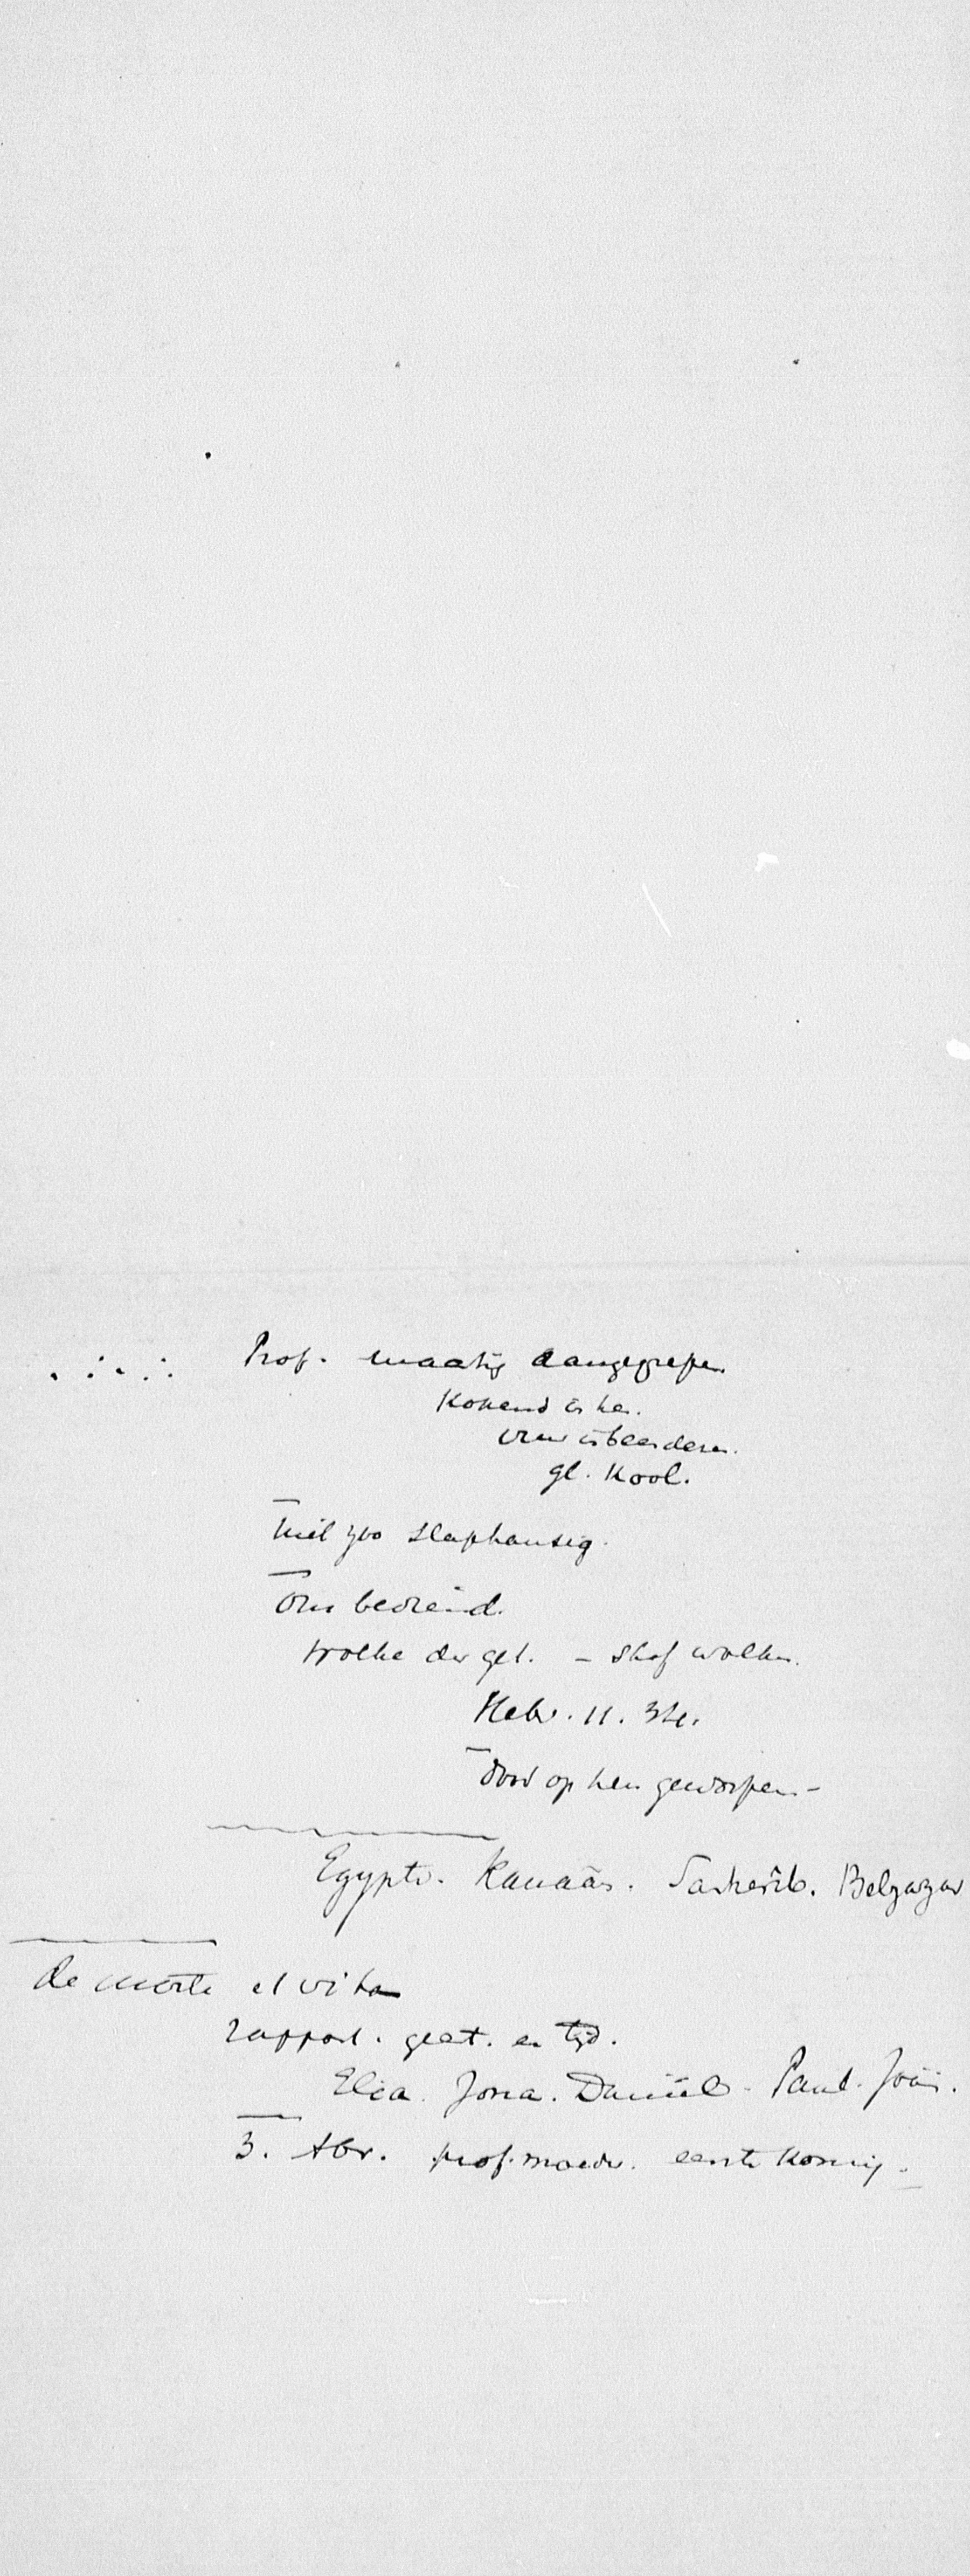 Prof. maatig aangegrepen
Kokend is hen.
gl. Kool.
Niet zoo slaphansig.
Ons bedreind.
Wolke der get. – stof wolken.
Hebr. 11. 34.
door op hen geworpen –
Egypte. Kanaän. Sanherib. Belzazar
de morte et vita
rapport. geest. en tijd.
Elia. Jona. Daniël. Paul. Joh.
3. Abr. prof. moeder. eerste Koning.